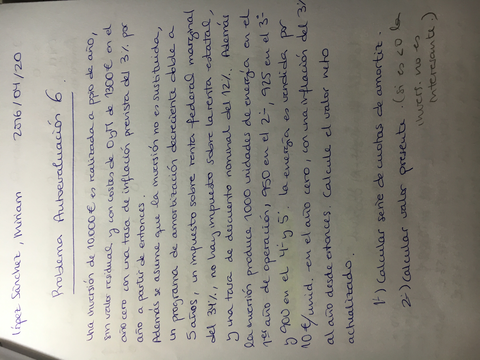 López Sánchez, Miriam 2016/04/20
Problema Autoevaluación 6.
Una inversión de 10000€ es realizada a ppio de año,
sin valor residual y con costes de O y M de 1300€ en el
año cero con una tasa de inflación prevista del 3% por
año a partir de entonces.
Además se asume que la inversión no es sustituida,
un programa de amortización decreciente doble a
5 años, un impuesto sobre renta federal marginal
del 34%, no hay impuesto sobre la renta estatal,
y una tasa de descuento nominal del 12%. Además
la inversión produce 1000 unidades de energía en el
1er año de operación, 950 en el 2º, 925 en el 3º
y 900 en el 4º y 5º. La energía es vendida por
10 €/unid. en el año cero, con una inflación del 3%
al año desde entonces. Calcule el valor neto
actualizado.
1º) Calcular serie de cuotas de amortiz.
2º) Calcular valor presente. (si es <0 la
invers. no es
interesante.)